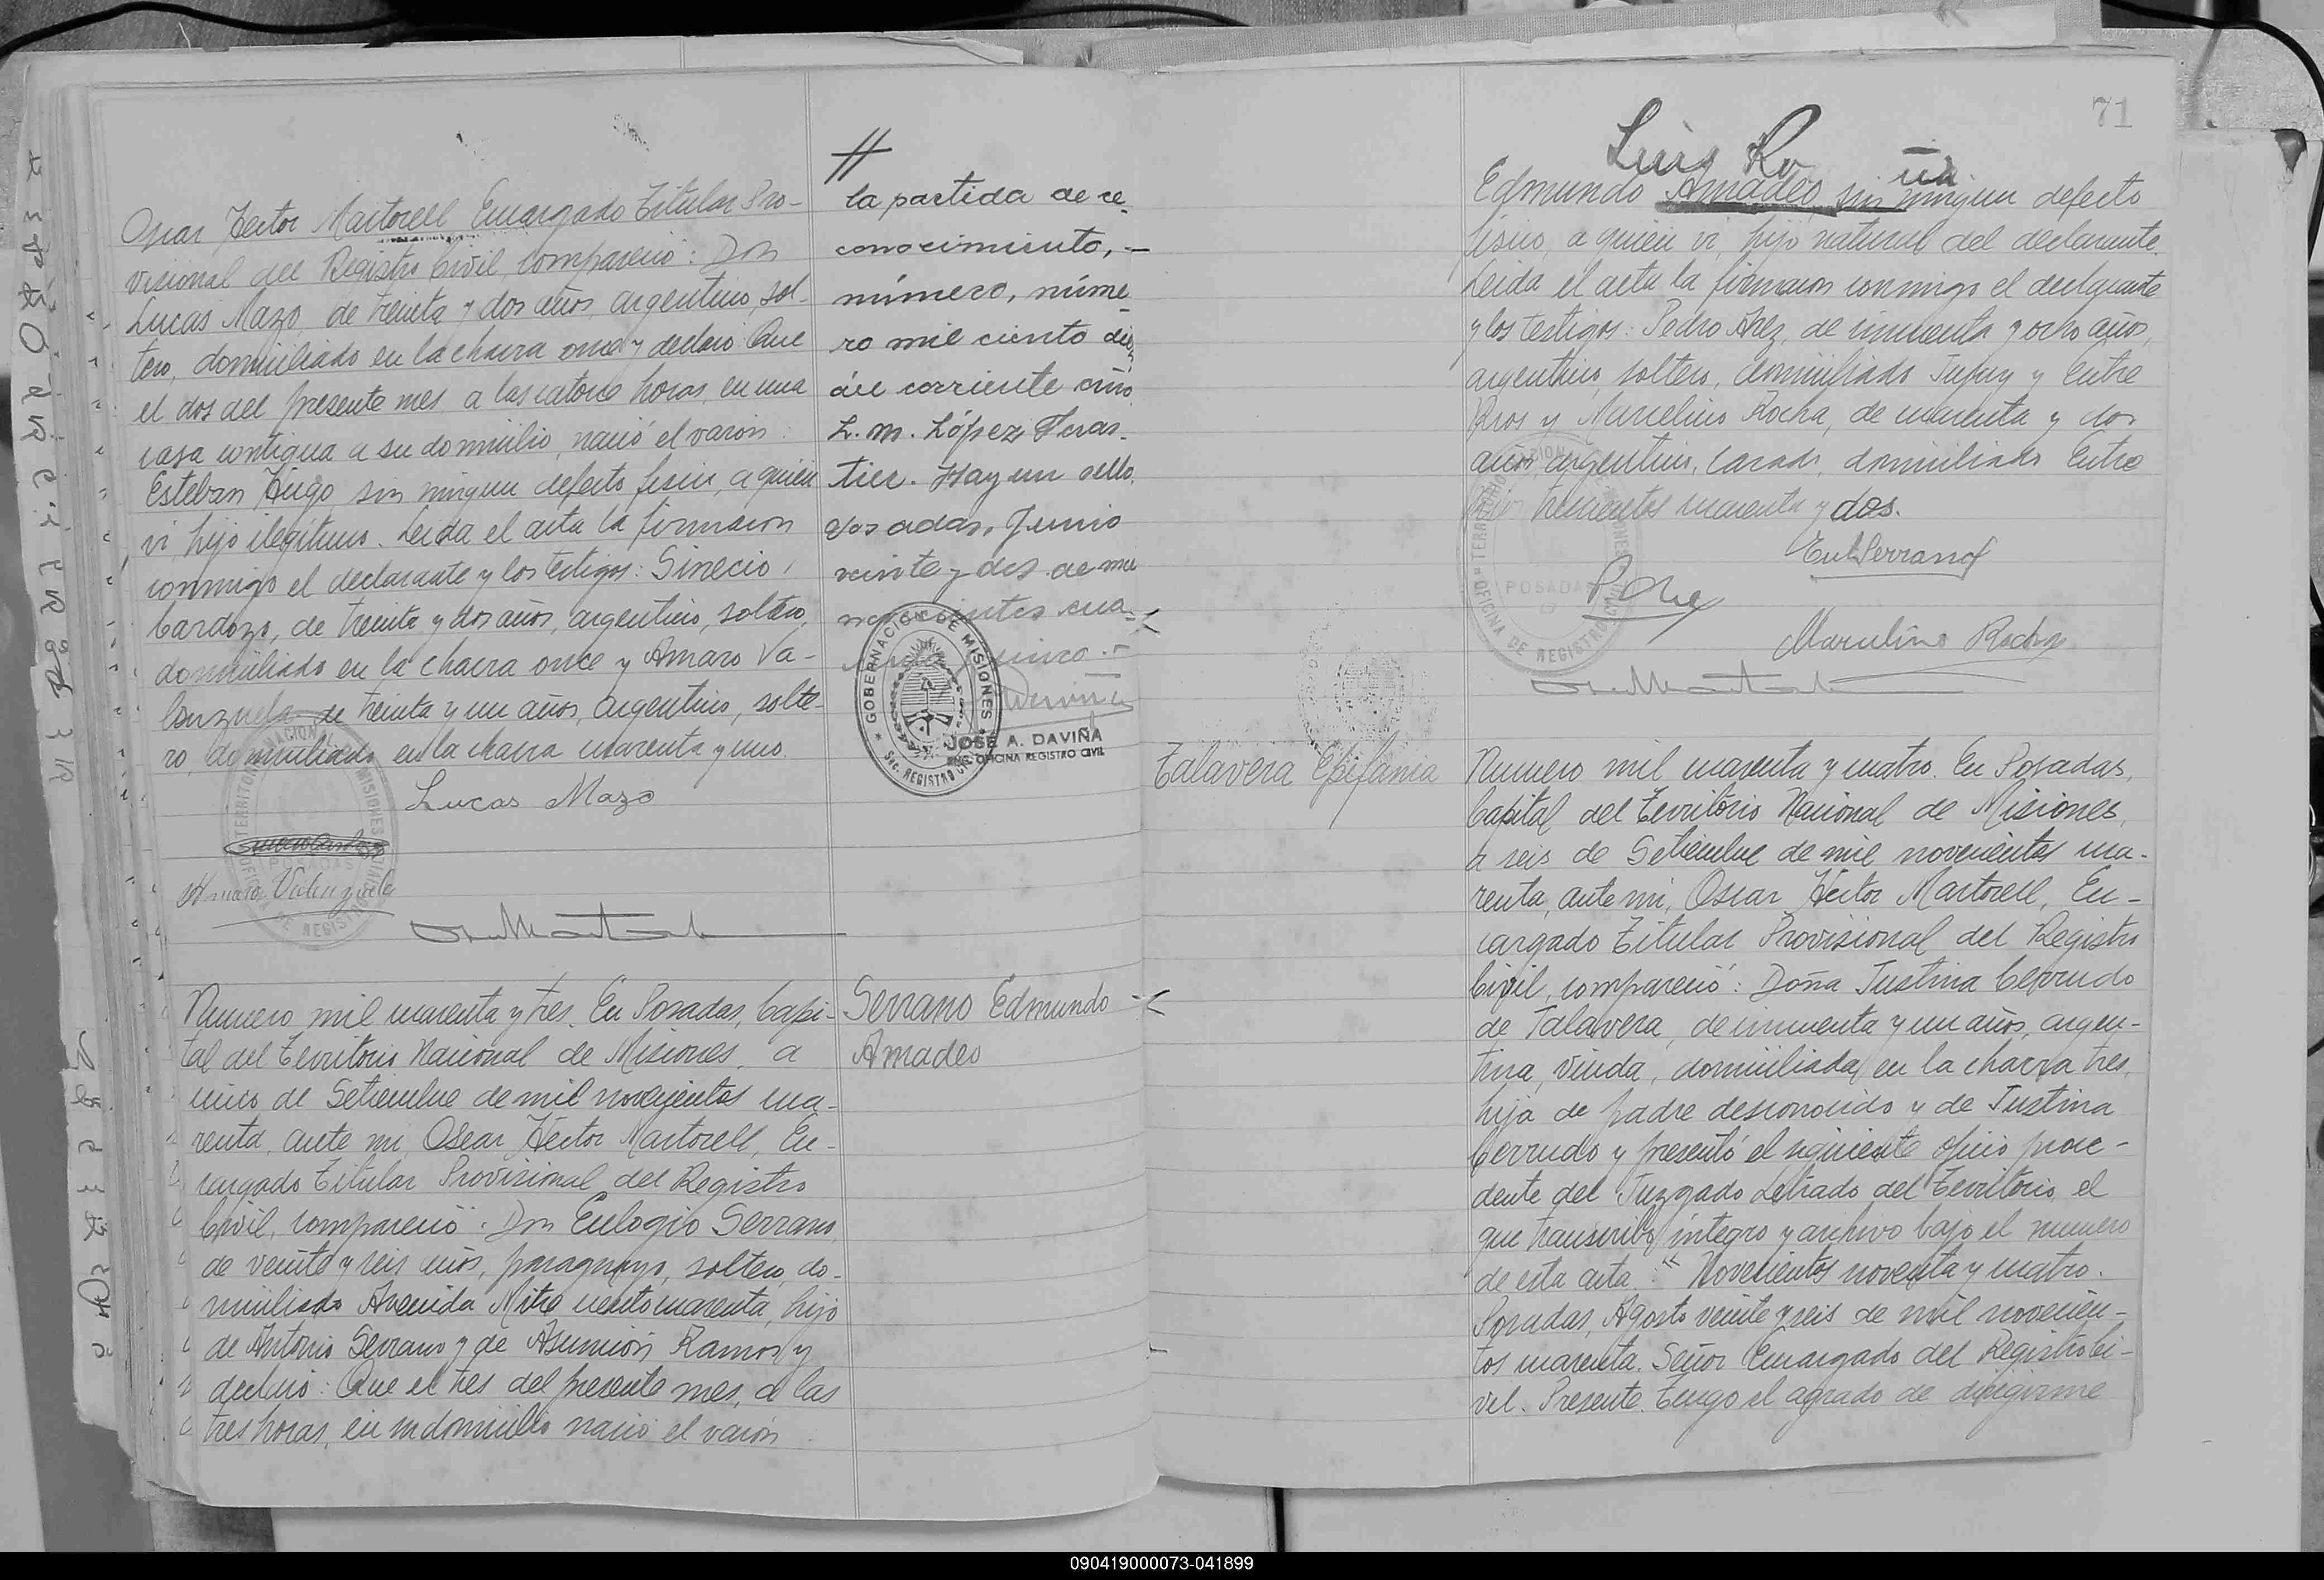 Oscar Hector Martorell Encargado Titular Pro-
visional del Registro Civil, compareció: Don
Lucas Mazo, de treinta y dos años, argentino, sol-
tero, domiciliado en la chacra once y declaró: Que
el dos del presente mes a las catorce horas, en una
casa contigua a su domicilio, nació el varon:
Esteban Hugo sin ningun defecto fisico, a quien
vi, hijo ilegitimo. Leida el acta la firmaron
conmigo el declarante y los testigos: Sinecio
Cardozo, de treinta y dos años, argentino, soltero,
domiciliado en la chacra once y Amaro Va-
lenzuela de treinta y un años, argentino, solte-
ro, domiciliado en la chacra cuarenta y uno.
Lucas Mazo
Amaro Valenzuela
Numero mil cuarenta y tres. En Posadas, Capi-
tal del Territorio Nacional de Misiones, a
cinco de Setiembre de mil novecientos cua-
renta, ante mi, Oscar Héctor Martorell, En-
cargado Titular Provisional del Registro
Civil, compareció: Don Eulogio Serrano
de veinte y seis años, paraguayo, soltero, do-
miciliado Avenida Mitre ciento cuarenta, hijo
de Antonio Serrano y de Asunción Ramos y
declaró: Que el tres del presente mes, a las
tres horas, en su domicilio nació el varón
la partida de re-
conocimiento, -
número, núme-
ro mil ciento diez
del corriente año.
L. M. López Feras-
tier. Hay un sello.
Posadas, Junio
veinte y dos de mil
novecientos cua-
GOBERNACION DE MISIONES
SEC. REGISTRO CIVIL
JOSE A. DAVIÑA
ENC. OFICINA REGISTRO CIVIL
Serrano Edmundo
Amadeo
71
Luis Ro
Edmundo Amadeo, sin ningun defecto
fisico, a quien vi, hijo natural del declarante.
Leida el acta la firmaron conmigo el declarante
y los testigos: Pedro Arez, de cincuenta y ocho años,
argentino, soltero, domiciliado Jujuy y Entre
Rios y Marcelino Rocha, de cuarenta y dos
años, argentino, casado, domiciliado Entre
Rios trescientos cuarenta y dos.
Eul. Serrano
Marcelino Rocha
POSADAS
OFICINA DE REGISTRO
Talavera Epifania
Numero mil cuarenta y cuatro. En Posadas,
Capital del Territorio Nacional de Misiones,
a seis de Setiembre de mil novecientos cua-
renta, ante mi, Oscar Héctor Martorell, En-
cargado Titular Provisional del Registro
Civil, compareció: Doña Justina Cerrudo
de Talavera, de cincuenta y un años, argen-
tina, viuda, domiciliada en la chacra tres,
hija de padre desconocido y de Justina
Cerrudo y presentó el siguiente oficio proce-
dente del Juzgado Letrado del Territorio, el
que transcribo integro y archivo bajo el numero
de esta acta: "Novecientos noventa y cuatro.
Posadas, Agosto veinte y seis de mil novecien-
tos cuarenta. Señor Encargado del Registro Ci-
vil. Presente. Tengo el agrado de dirigirme
090419000073-041899